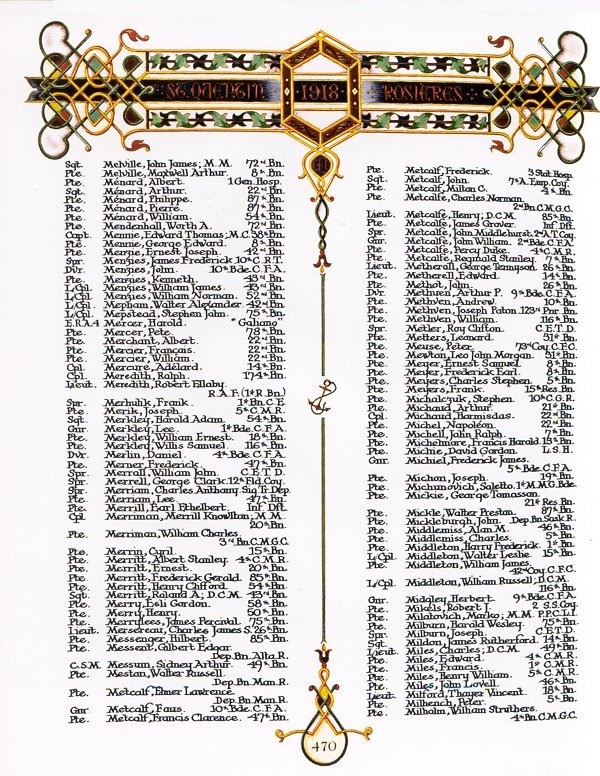 ST. QUENTIN 1918 ROSIERES
Sgt. Melville, John James; M.M. 72nd Bn.
Pte. Melville, Maxwell Arthur. 8th Bn.
Pte. Ménard, Albert. 1 Gen. Hosp.
Sgt. Ménard, Arthur. 22nd Bn.
Pte. Ménard, Philippe. 87th Bn.
Pte. Ménard, Pierre. 87th Bn.
Pte. Ménard, William. 54th Bn.
Pte. Mendenhall, Worth A. 72nd Bn.
Capt. Menne, Edward Thomas; M.C. 38th Bn.
Pte. Menne, George Edward. 8th Bn.
Pte. Ernest Joseph. 42nd Bn.
Spr. Menzies, James Frederick 10th C.R.T.
Dvr. Menzies, John. 10th Bde. C.F.A.
Pte. Menzies, Kenneth. 43rd Bn.
L/Cpl. Menzies, William James. 43rd Bn.
L/Cpl. Menzies, William Norman. 52nd Bn.
L/Cpl. Mepham, Walter Alexander. 42nd Bn.
L/Cpl. Mepstead, Stephen John. 75th Bn.
E.R.A.4 Mercer, Harold. "Galiano"
Pte. Mercer, Pete. 78th Bn.
Pte. Merchant, Albert. 22nd Bn.
Pte. Mercier, Français. 22nd Bn.
Pte. Mercier, William. 22nd Bn.
Cpl. Mercure, Adélard. 14th Bn.
Cpl. Meredith, Ralph. 174th Bn.
Lieut. Meredith, Robert Ellaby.
R.A.F. (1st R. Bn.)
Spr. Merhuhk, Frank. 1st Bn. C.E.
Pte. Merik, Joseph. 5th C.M.R.
Sgt. Merkley, Harold Adam. 54th Bn.
Gnr. Merkley, Lee. 1st Bde. C.F.A.
Pte. Merkley, William Ernest. 18th Bn.
Pte. Merkley, Willis Samuel. 116th Bn.
Dvr. Merlin, Daniel. 4th Bde. C.F.A.
Pte. Merner, Frederick. 47th Bn.
Spr. Merrall, William John. C.E.T.D.
Spr. Merrell, George Clark. 12th Fld. Coy.
Spr. Merriam, Charles Anthony. Sig. Tr. Dep.
Pte. Merriam, Lee. 47th Bn.
Pte. Merrill, Earl Ethelbert. Inf. Dft.
Cpl. Merriman, Merrill Knowlton; M.M.
20th Bn.
Pte. Merriman, William Charles.
3rd Bn. C.M.G.C.
Pte. Merrin, Cyril. 15th Bn.
Pte. Merritt, Albert Stanley. 4th C.M.R.
Pte. Merritt, Ernest. 20th Bn.
Pte. Merritt, Frederick Gerald. 85th Bn.
Pte. Merritt, Henry Clifford. 54th Bn.
Sgt. Merritt, Roland A.; D.C.M. 43rd Bn.
Pte. Merry, Esli Gordon. 58th Bn.
Pte. Merry, Henry. 50th Bn.
Pte. Merrylees, James Percival. 75th Bn.
Lieut. Mersereau, Charles James S. 26th Bn.
Pte. Messenger, Hilbert. 85th Bn.
Pte. Messent, Gilbert Edgar.
Dep. Bn. Alta R.
C.S.M. Messum, Sidney Arthur. 49th Bn.
Pte. Mestan, Walter Russell.
Dep. Bn. Man. R.
Pte. Metcalf, Elmer Lawrence.
Dep. Bn. Man. R.
Gnr. Metcalf, Faus. 10th Bde. C.F.A.
Pte. Metcalf, Francis Clarence. 47th Bn.
Pte. Metcalf, Frederick. 3 Stat. Hosp.
Sgt. Metcalf, John. 7th A. Emp. Coy.
Pte. Metcalf, Milton C. 4th Bn.
Pte. Metcalfe, Charles Norman.
2nd Bn. C.M.G.C.
Lieut. Metcalfe, Henry; D.C.M. 85th Bn.
Pte. Metcalfe, James Grover. Inf. Dft.
Spr. Metcalfe, John Middlehurst. 2nd A.T. Coy.
Gnr. Metcalfe, John William. 2nd Bde. C.F.A.
Pte. Metcalfe, Percy Duke. 4th C.M.R.
Pte. Metcalfe, Reginald Stanley. 7th Bn.
Lieut. Metherall, George Tennyson. 26th Bn.
Pte. Metherell, Edward. 14th Bn.
Pte. Methot, John. 26th Bn.
Dvr. Methven, Arthur P. 9th Bde. C.F.A.
Pte. Methven, Andrew. 10th Bn.
Pte. Methven, Joseph Paton. 123rd Pnr. Bn.
Pte. Methven, William. 116th Bn.
Spr. Metler, Roy Clifton. C.E.T.D.
Pte. Metters, Leonard. 51st Bn.
Pte. Meuse, Peter. 73rd Coy. C.F.C.
Pte. Mewton, Leo John Morgan. 51st Bn.
Pte. Meyer, Ernest Samuel. 8th Bn.
Pte. Meyer, Frederick Earl. 8th Bn.
Pte. Meyers, Charles Stephen. 5th Bn.
Pte. Meyers, Frank. 15th Res. Bn.
Pte. Michalczyk, Stephen. 10th C.G.R.
Pte. Michaud, Arthur. 21st Bn.
Cpl. Michaud, Hormisdas. 22nd Bn.
Pte. Michel, Napoléon. 22nd Bn.
Pte. Michell, John Ralph. 7th Bn.
Pte. Michelmore, Francis Harold. 13th Bn.
Pte. Michie, David Gordon. L.S.H.
Gnr. Michiel, Frederick James.
5th Bde. C.F.A.
Pte. Michon, Joseph. 19th Bn.
Pte. Michunovich, Saletto. 1st M.M.G. Bde.
Pte. Mickie, George Tomassan.
21st Res. Bn.
Pte. Mickle, Walter Preston. 87th Bn.
Pte. Mickleburgh, John. Dep. Bn. Sask R.
Pte. Middlemiss, Alan M. 46th Bn.
Pte. Middlemiss, Charles. 5th Bn.
Pte. Middleton, Harry Frederick. 1st Bn.
L/Cpl. Middleton, Walter Leslie. 15th Bn.
Pte. Middleton, William James.
42nd Coy. C.F.C.
L/Cpl. Middleton, William Russell; D.C.M.
116th Bn.
Gnr. Midgley, Herbert. 9th Bde. C.F.A.
Pte. Mikels, Robert J. 2 S.S. Coy.
Pte. Milatovich, Marko; M.M. P.P.C.L.I.
Pte. Milburn, Harold Wesley. 75th Bn.
Spr. Milburn, Joseph. C.E.T.D.
Sgt. Mildan, James Rutherford. 14th Bn.
Lieut. Miles, Charles; D.C.M. 49th Bn.
Pte. Miles, Edward. 4th C.M.R.
Pte. Miles, Francis. 1st C.M.R.
Pte. Miles, Henry William. 5th C.M.R.
Pte. Miles, John Lovell. 46th Bn.
Lieut. Milford, Thayer Vincent. 18th Bn.
Pte. Milhench, Peter. 5th Bn.
Pte. Milholm, William Struthers.
4th Bn. C.M.G.C.
470